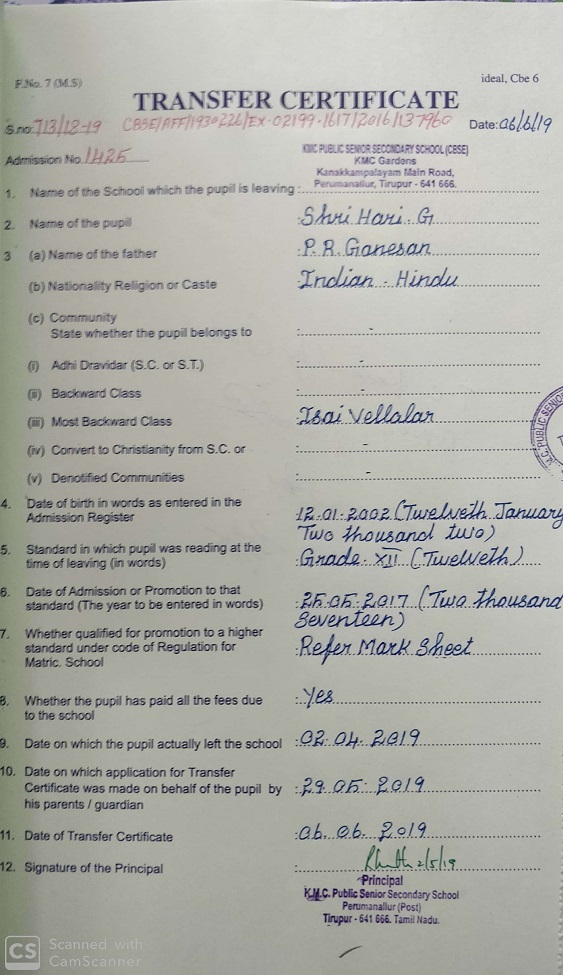 F.No. 7 (M.S)
ideal, Cbe 6
TRANSFER CERTIFICATE
S.no: 713/18-19 CBSE/AFF/1930226/EX-02199-1617/2016/137960 Date: 06/6/19
Admission No. 1425
KMC PUBLIC SENIOR SECONDARY SCHOOL (CBSE)
KMC Gardens
Kanakkampalayam Main Road,
Perumanallur, Tirupur - 641 666.
1. Name of the School which the pupil is leaving :
2. Name of the pupil : Shri Hari. G
3 (a) Name of the father : P. R. Ganesan
(b) Nationality Religion or Caste : Indian - Hindu
(c) Community
State whether the pupil belongs to : -
(i) Adhi Dravidar (S.C. or S.T.) : -
(ii) Backward Class : -
(iii) Most Backward Class : Isai Vellalar
(iv) Convert to Christianity from S.C. or : -
(v) Denotified Communities : -
4. Date of birth in words as entered in the
Admission Register
12.01.2002 (Twelveth January
Two thousand two)
5. Standard in which pupil was reading at the
time of leaving (in words)
: Grade - XII (Twelveth)
6. Date of Admission or Promotion to that
standard (The year to be entered in words)
: 25.05.2017 (Two thousand
Seventeen)
7. Whether qualified for promotion to a higher
standard under code of Regulation for
Matric. School
: Refer Mark Sheet
8. Whether the pupil has paid all the fees due
to the school
: Yes
9. Date on which the pupil actually left the school : 02.04.2019
10. Date on which application for Transfer
Certificate was made on behalf of the pupil by
his parents / guardian
: 29.05.2019
11. Date of Transfer Certificate : 06.06.2019
12. Signature of the Principal : 2/5/19
Principal
K.M.C. Public Senior Secondary School
Perumanallur (Post)
Tirupur - 641 666. Tamil Nadu.
C. PUBLIC SENIOR
CS Scanned with
CamScanner